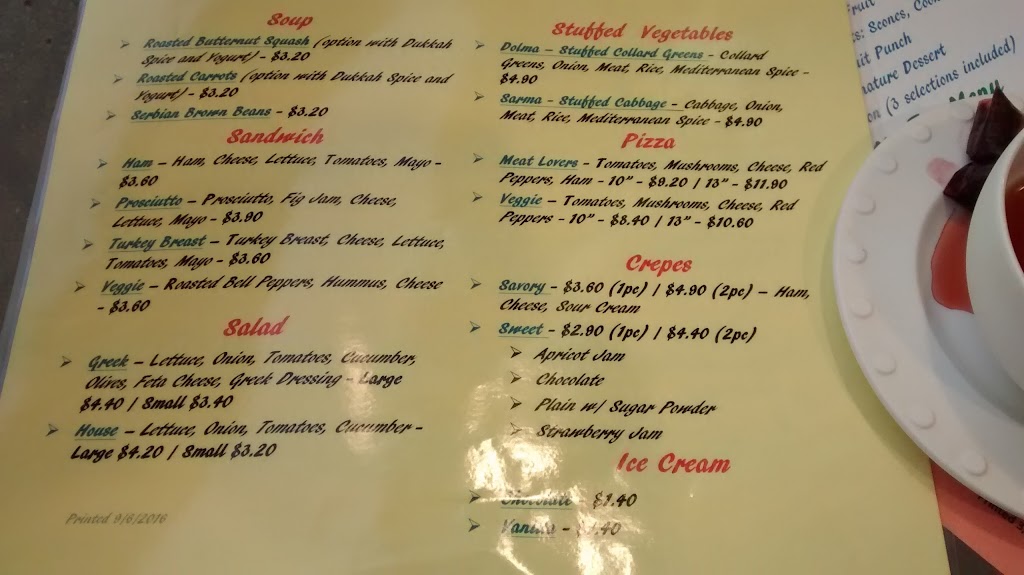 Soup
Roasted Butternut Squash (option with Dukkah
Spice and Yogurt) - $3.20
Roasted Carrots (option with Dukkah Spice and
Yogurt) - $3.20
Serbian Brown Beans - $3.20
Sandwich
Ham – Ham, Cheese, Lettuce, Tomatoes, Mayo -
$3.60
Prosciutto – Prosciutto, Fig Jam, Cheese,
Lettuce, Mayo - $3.90
Turkey Breast – Turkey Breast, Cheese, Lettuce,
Tomatoes, Mayo - $3.60
Veggie – Roasted Bell Peppers, Hummus, Cheese
- $3.60
Salad
Greek – Lettuce, Onion, Tomatoes, Cucumber,
Olives, Feta Cheese, Greek Dressing - Large
$4.40 / Small $3.40
House – Lettuce, Onion, Tomatoes, Cucumber -
Large $4.20 / Small $3.20
Printed 9/6/2016
Stuffed Vegetables
Dolma – Stuffed Collard Greens - Collard
Greens, Onion, Meat, Rice, Mediterranean Spice -
$4.90
Sarma - Stuffed Cabbage - Cabbage, Onion,
Meat, Rice, Mediterranean Spice - $4.90
Pizza
Meat Lovers - Tomatoes, Mushrooms, Cheese, Red
Peppers, Ham - 10" - $9.20 / 13" - $11.90
Veggie - Tomatoes, Mushrooms, Cheese, Red
Peppers - 10" - $8.40 / 13" - $10.60
Crepes
Savory - $3.60 (1pc) / $4.90 (2pc) – Ham,
Cheese, Sour Cream
Sweet - $2.90 (1pc) / $4.40 (2pc)
Apricot Jam
Chocolate
Plain w/ Sugar Powder
Strawberry Jam
Ice Cream
Chocolate - $1.40
Vanilla - $1.40
Scones,
Punch
Dessert
(3 selections included)
Menu